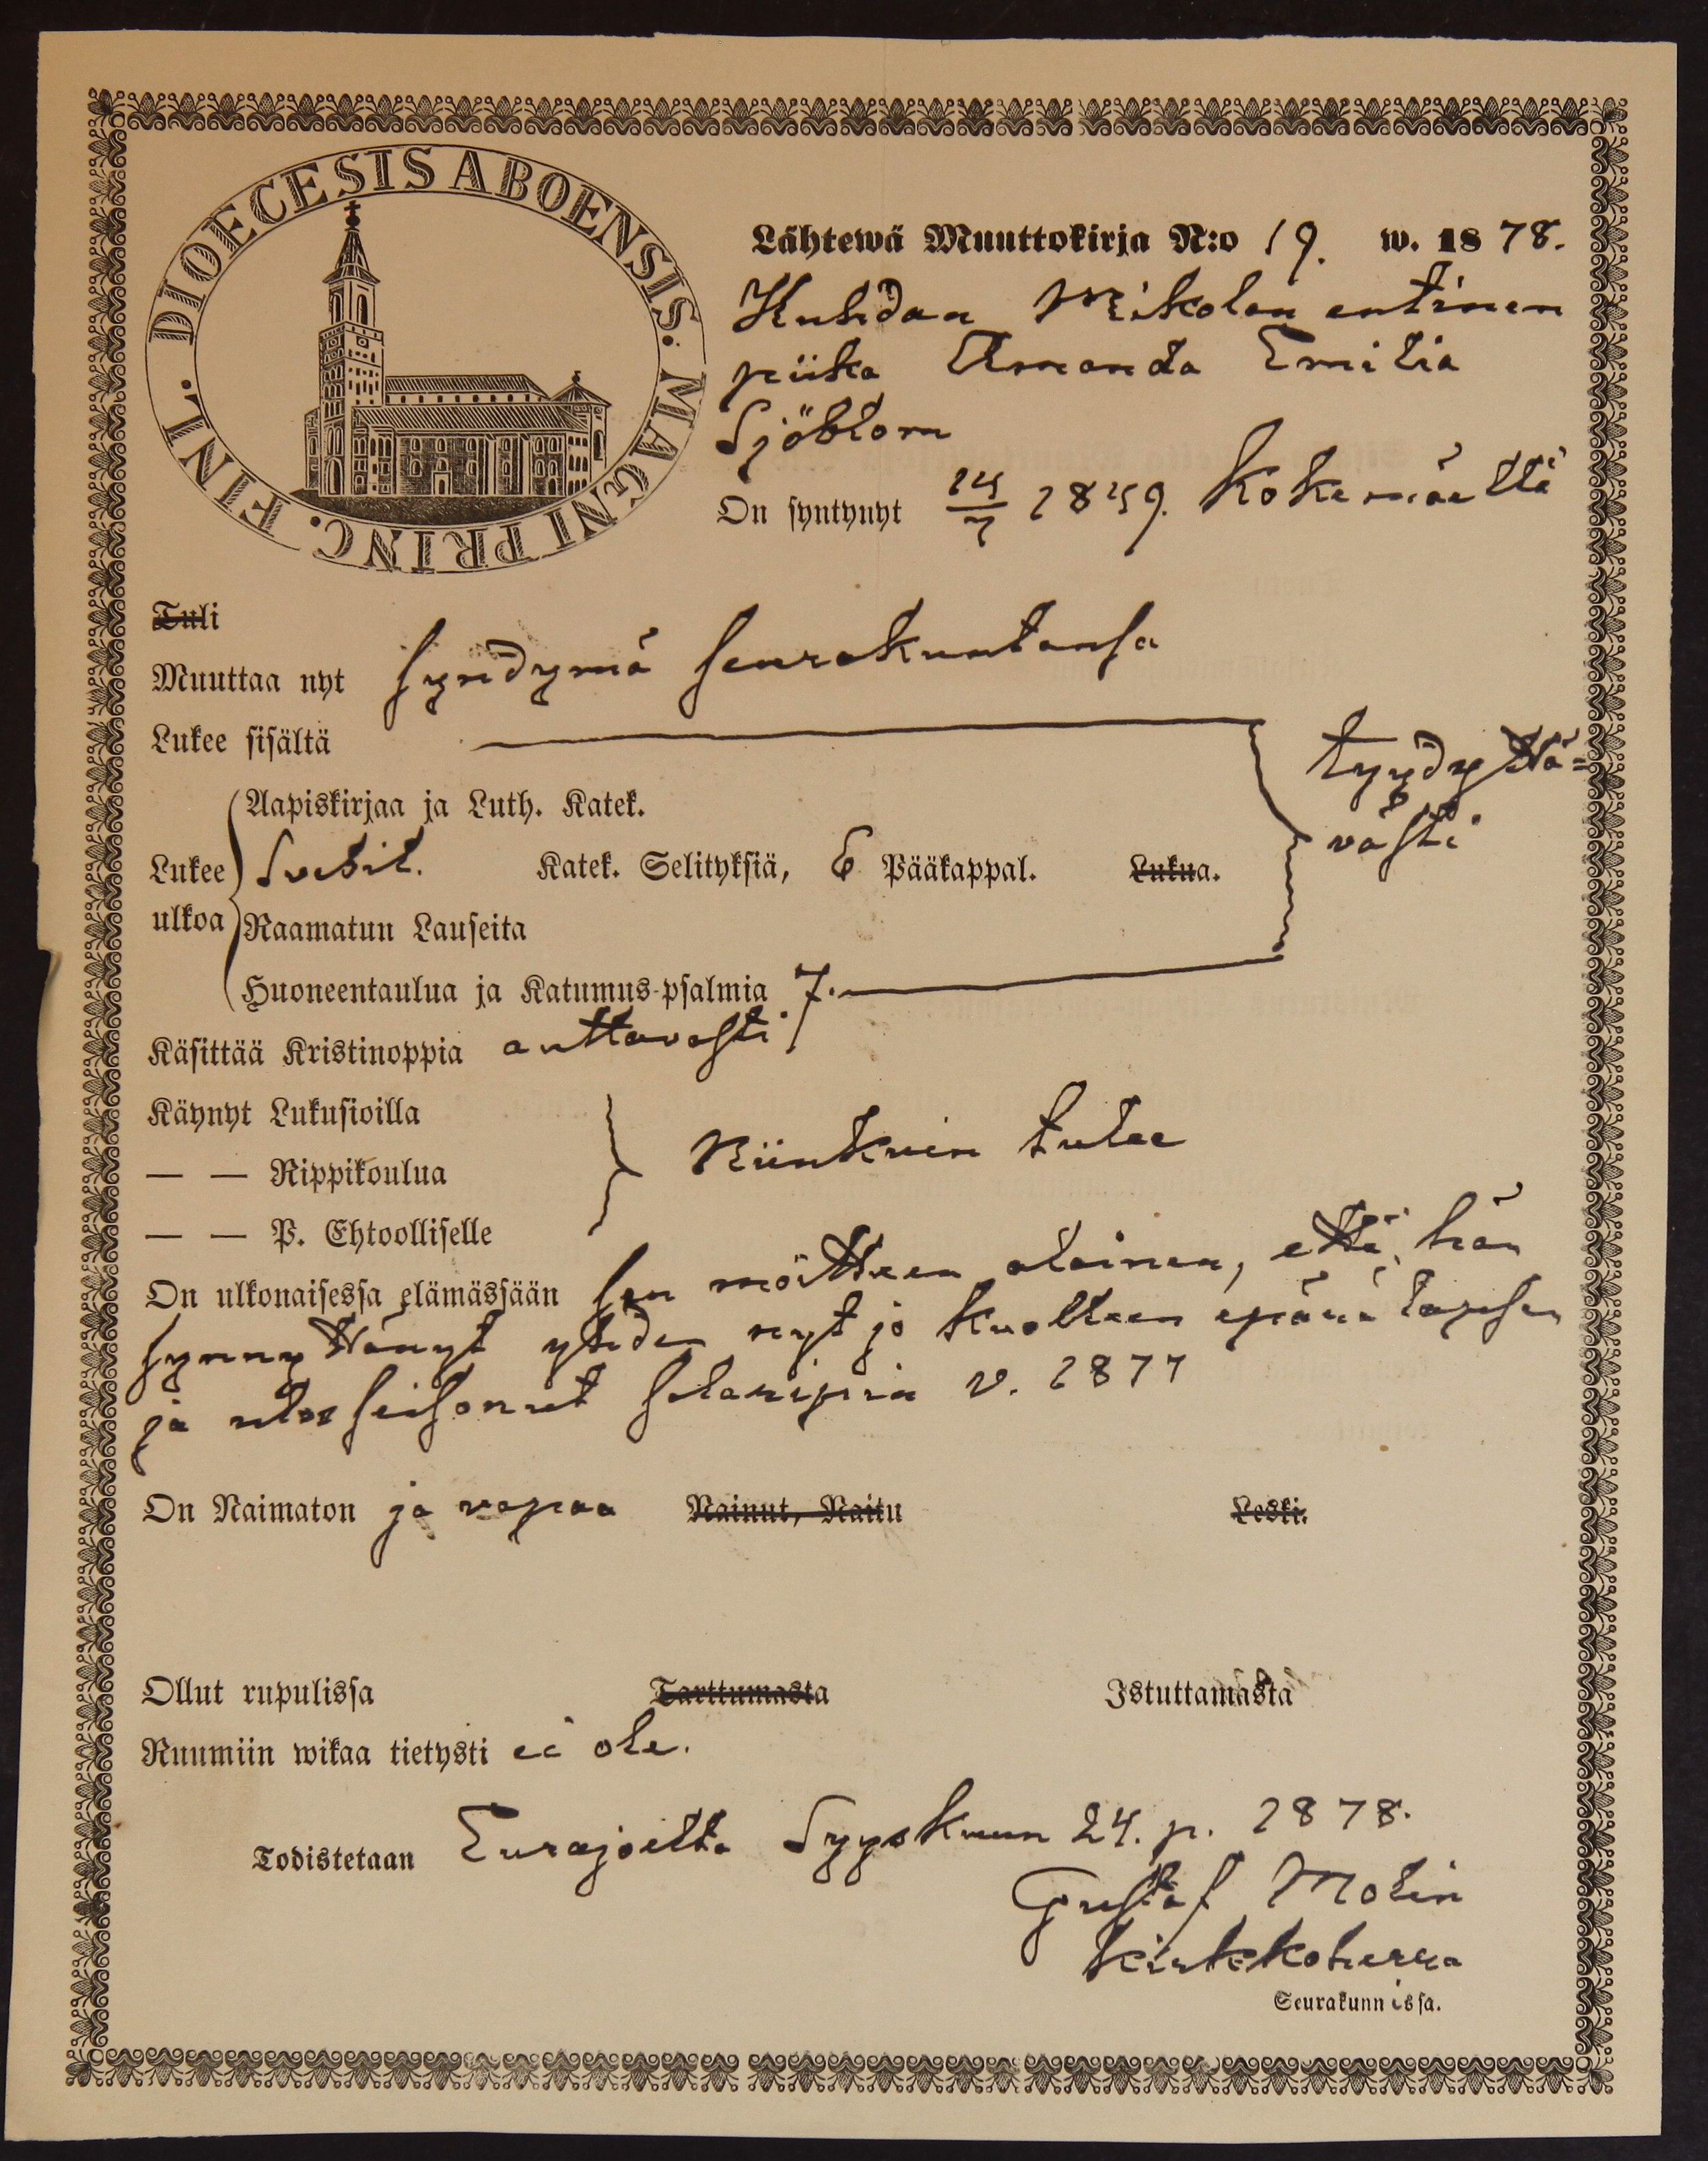 DIOECESIS ABOENSIS. MAGNI PRINC. FINL.
Lähtewä Muuttokirja N:o 19. w. 1878.
Mikolan entinen
piika Amanda Emilia
Sjöblom
On syntynyt 24/7 1849. Kokemäellä
Tuli
Muuttaa nyt syndymä seurakuntansa
Lukee sisältä
tyydyttä=
västi
Aapiskirjaa ja Luth. Katek.
Lukee Svebil. Katek. Selityksiä, 6 Pääkappal. Lukua.
ulkoa Raamatun Lauseita
Huoneentaulua ja Katumus-psalmia 7.
Käsittää Kristinoppia auttavasti
Käynyt Lukusioilla
— — Rippikoulua
Niinkuin tulee
— — P. Ehtoolliselle
On ulkonaisessa elämässään sen möitteen alainen, että hän
synnyttänyt yhden nyt jo kuolleen epärä lapsen
ja ulosseisonut salaripin v. 1877
On Naimaton ja vapaa Nainut, Naitu Leski.
Ollut rupulissa Tarttumasta Istuttamasta
Ruumiin wikaa tietysti ei ole.
Todistetaan Eurajoella Syyskuun 24. p. 1878.
Gustaf Molin
Kirkkoherra
Seurakunnissa.